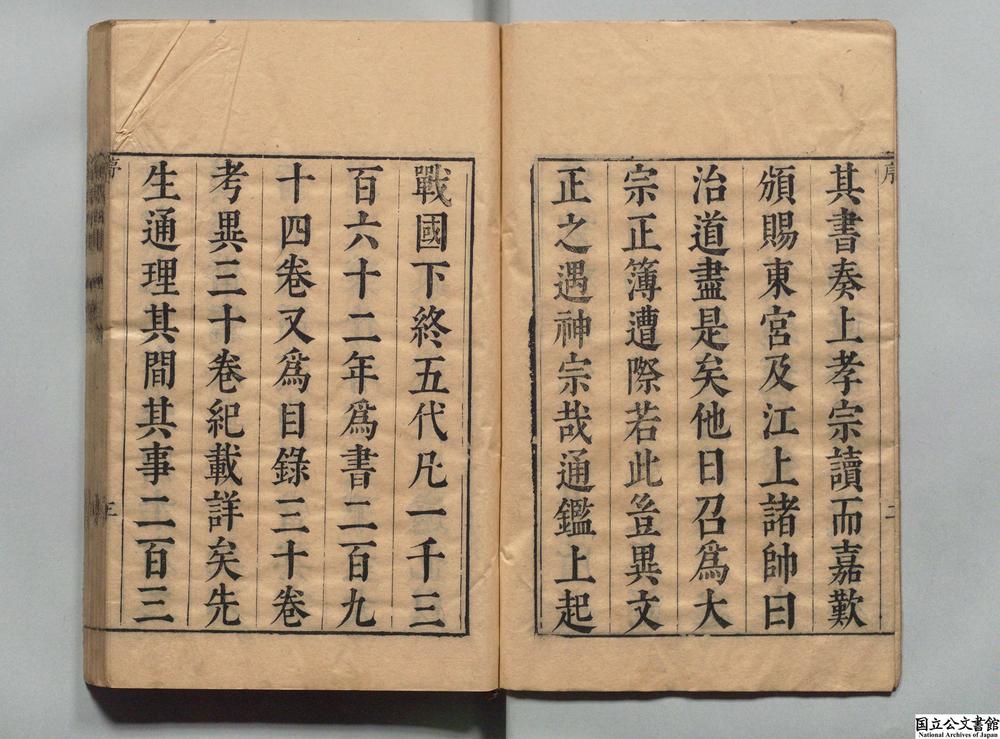 其書奏上孝宗讀而嘉歎
頒賜東宮及江上諸帥曰
治道盡是矣他日召爲大
宗正簿遭際若此豈異文
正之遇神宗哉通鑑上起
戰國下終五代凡一千三
百六十二年爲書二百九
十四卷又爲目錄三十卷
考異三十卷紀載詳矣先
生通理其間其事二百三
序
二
序
三
国立公文書館
National Archives of Japan